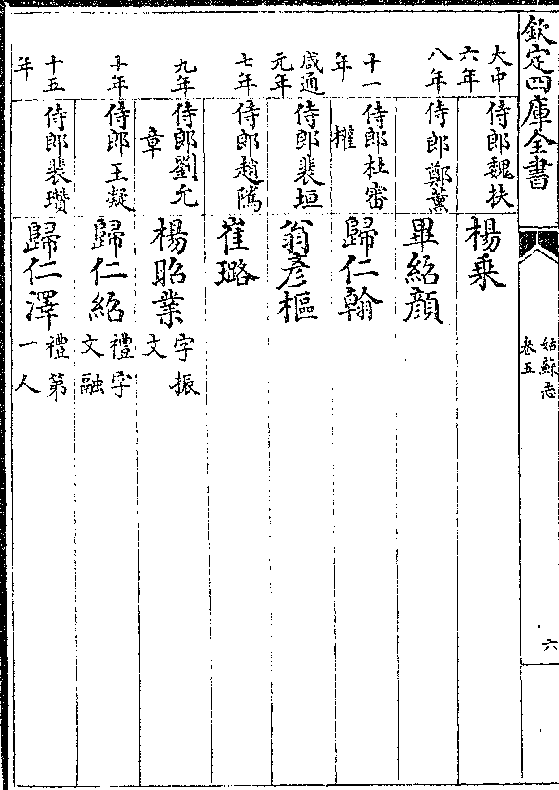 欽定四庫全書
姑蘇志
卷五
六
大中六年 侍郎魏扶 楊乗
八年 侍郎鄭薰 畢紹顔
十一年 侍郎杜審權 歸仁翰
咸通元年 侍郎裴垣 翁彦樞
七年 侍郎趙隲 崔璐
九年 侍郎劉允章 楊昭業 字振文
十年 侍郎王凝 歸仁紹 禮字文融
十五年 侍郎裴瓚 歸仁澤 禮第一人